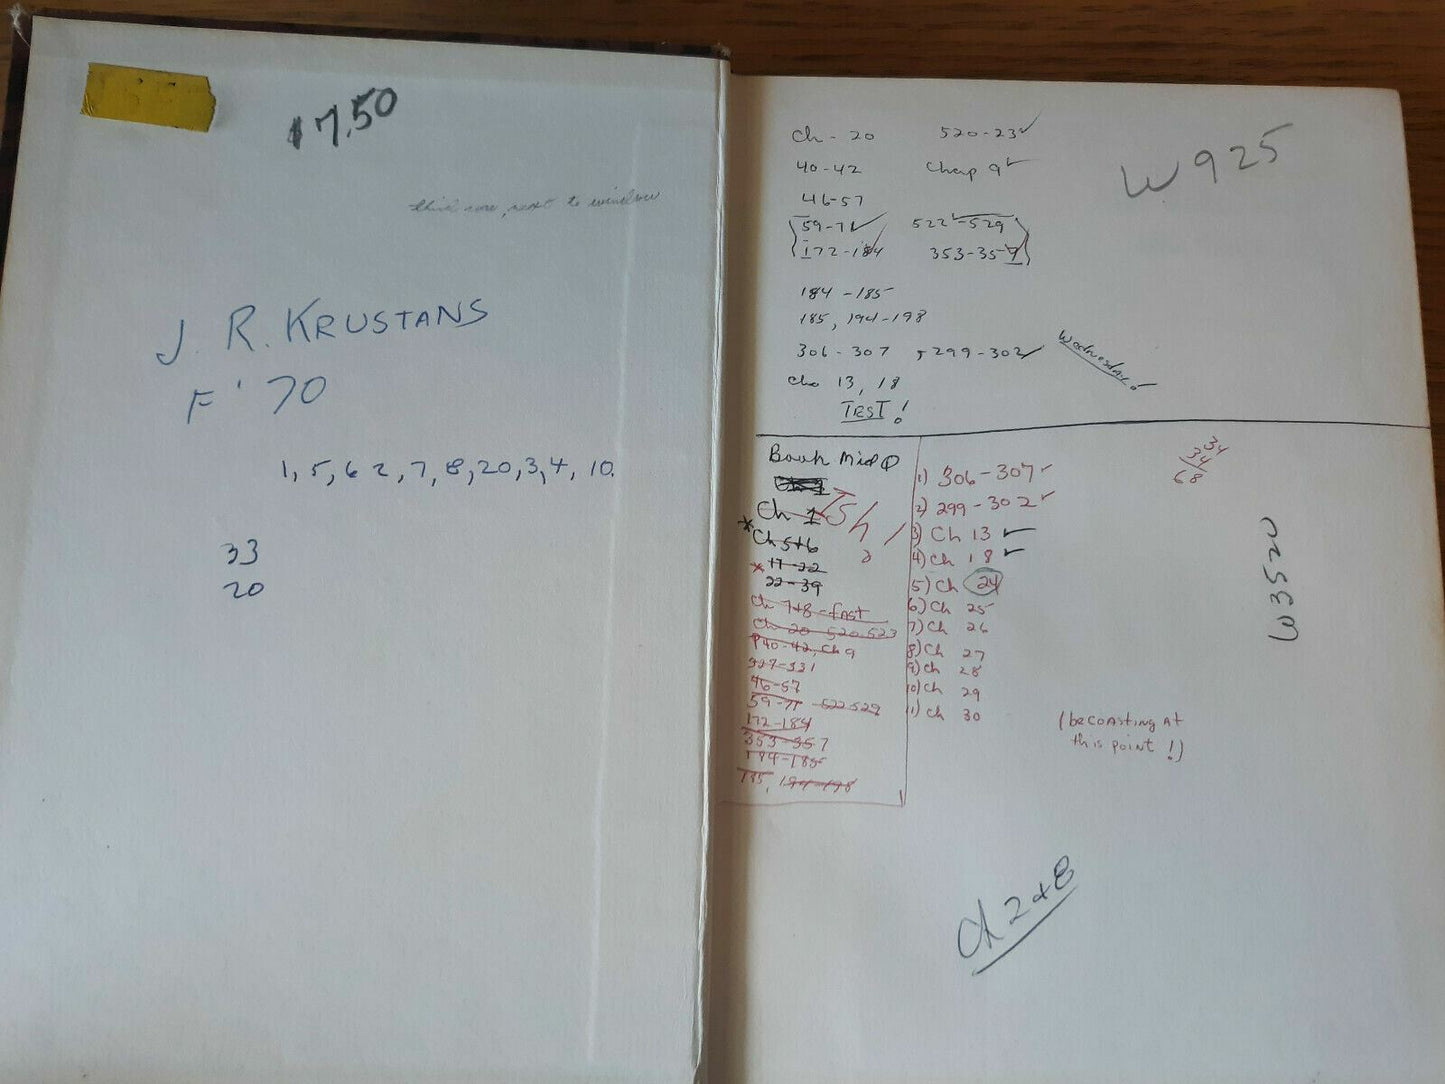 $7.50
third row, next to window
J. R. KRUSTANS
F '70
1, 5, 6 2, 7, 8, 20, 3, 4, 10.
33
20
Ch - 20 520-23✓
40-42 Chap 9✓
46-57
59-71✓ 522-529
172-184 353-357
184-185
185, 194-198
306-307 299-302✓
Chs 13, 18
TEST!
Wednesday!
W925
Book Mid
Ch 1
*Ch 5+6
*17-22
22-39
Ch 7+8-fast
Ch 20 520-523
P40-42, Ch 9
327-331
46-57
59-71 522-529
172-184
353-357
184-185
185, 194-198
1) 306-307✓
2) 299-302✓
3) Ch 13✓
4) Ch 18✓
5) Ch 24
6) Ch 25
7) Ch 26
8) Ch 27
9) Ch 28
10) Ch 29
11) Ch 30
34
34
68
W352W
(be coasting at
this point!)
Ch 2+8